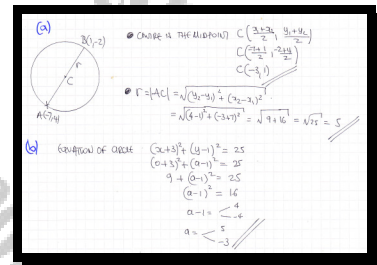 (a)
B(1,-2)
r
C
A(-7,4)
• CENTRE IS THE MIDPOINT C((x₁+x₂)/2, (y₁+y₂)/2)
C((-7+1)/2, (-2+4)/2)
C(-3,1)
• r = |AC| = √((y₂-y₁)²+(x₂-x₁)²)
= √((4-1)²+(-3+7)²) = √(9+16) = √25 = 5
(b) EQUATION OF CIRCLE (x+3)²+(y-1)² = 25
(0+3)²+(a-1)² = 25
9+(a-1)² = 25
(a-1)² = 16
a-1 = < 4
-4
a = < 5
-3